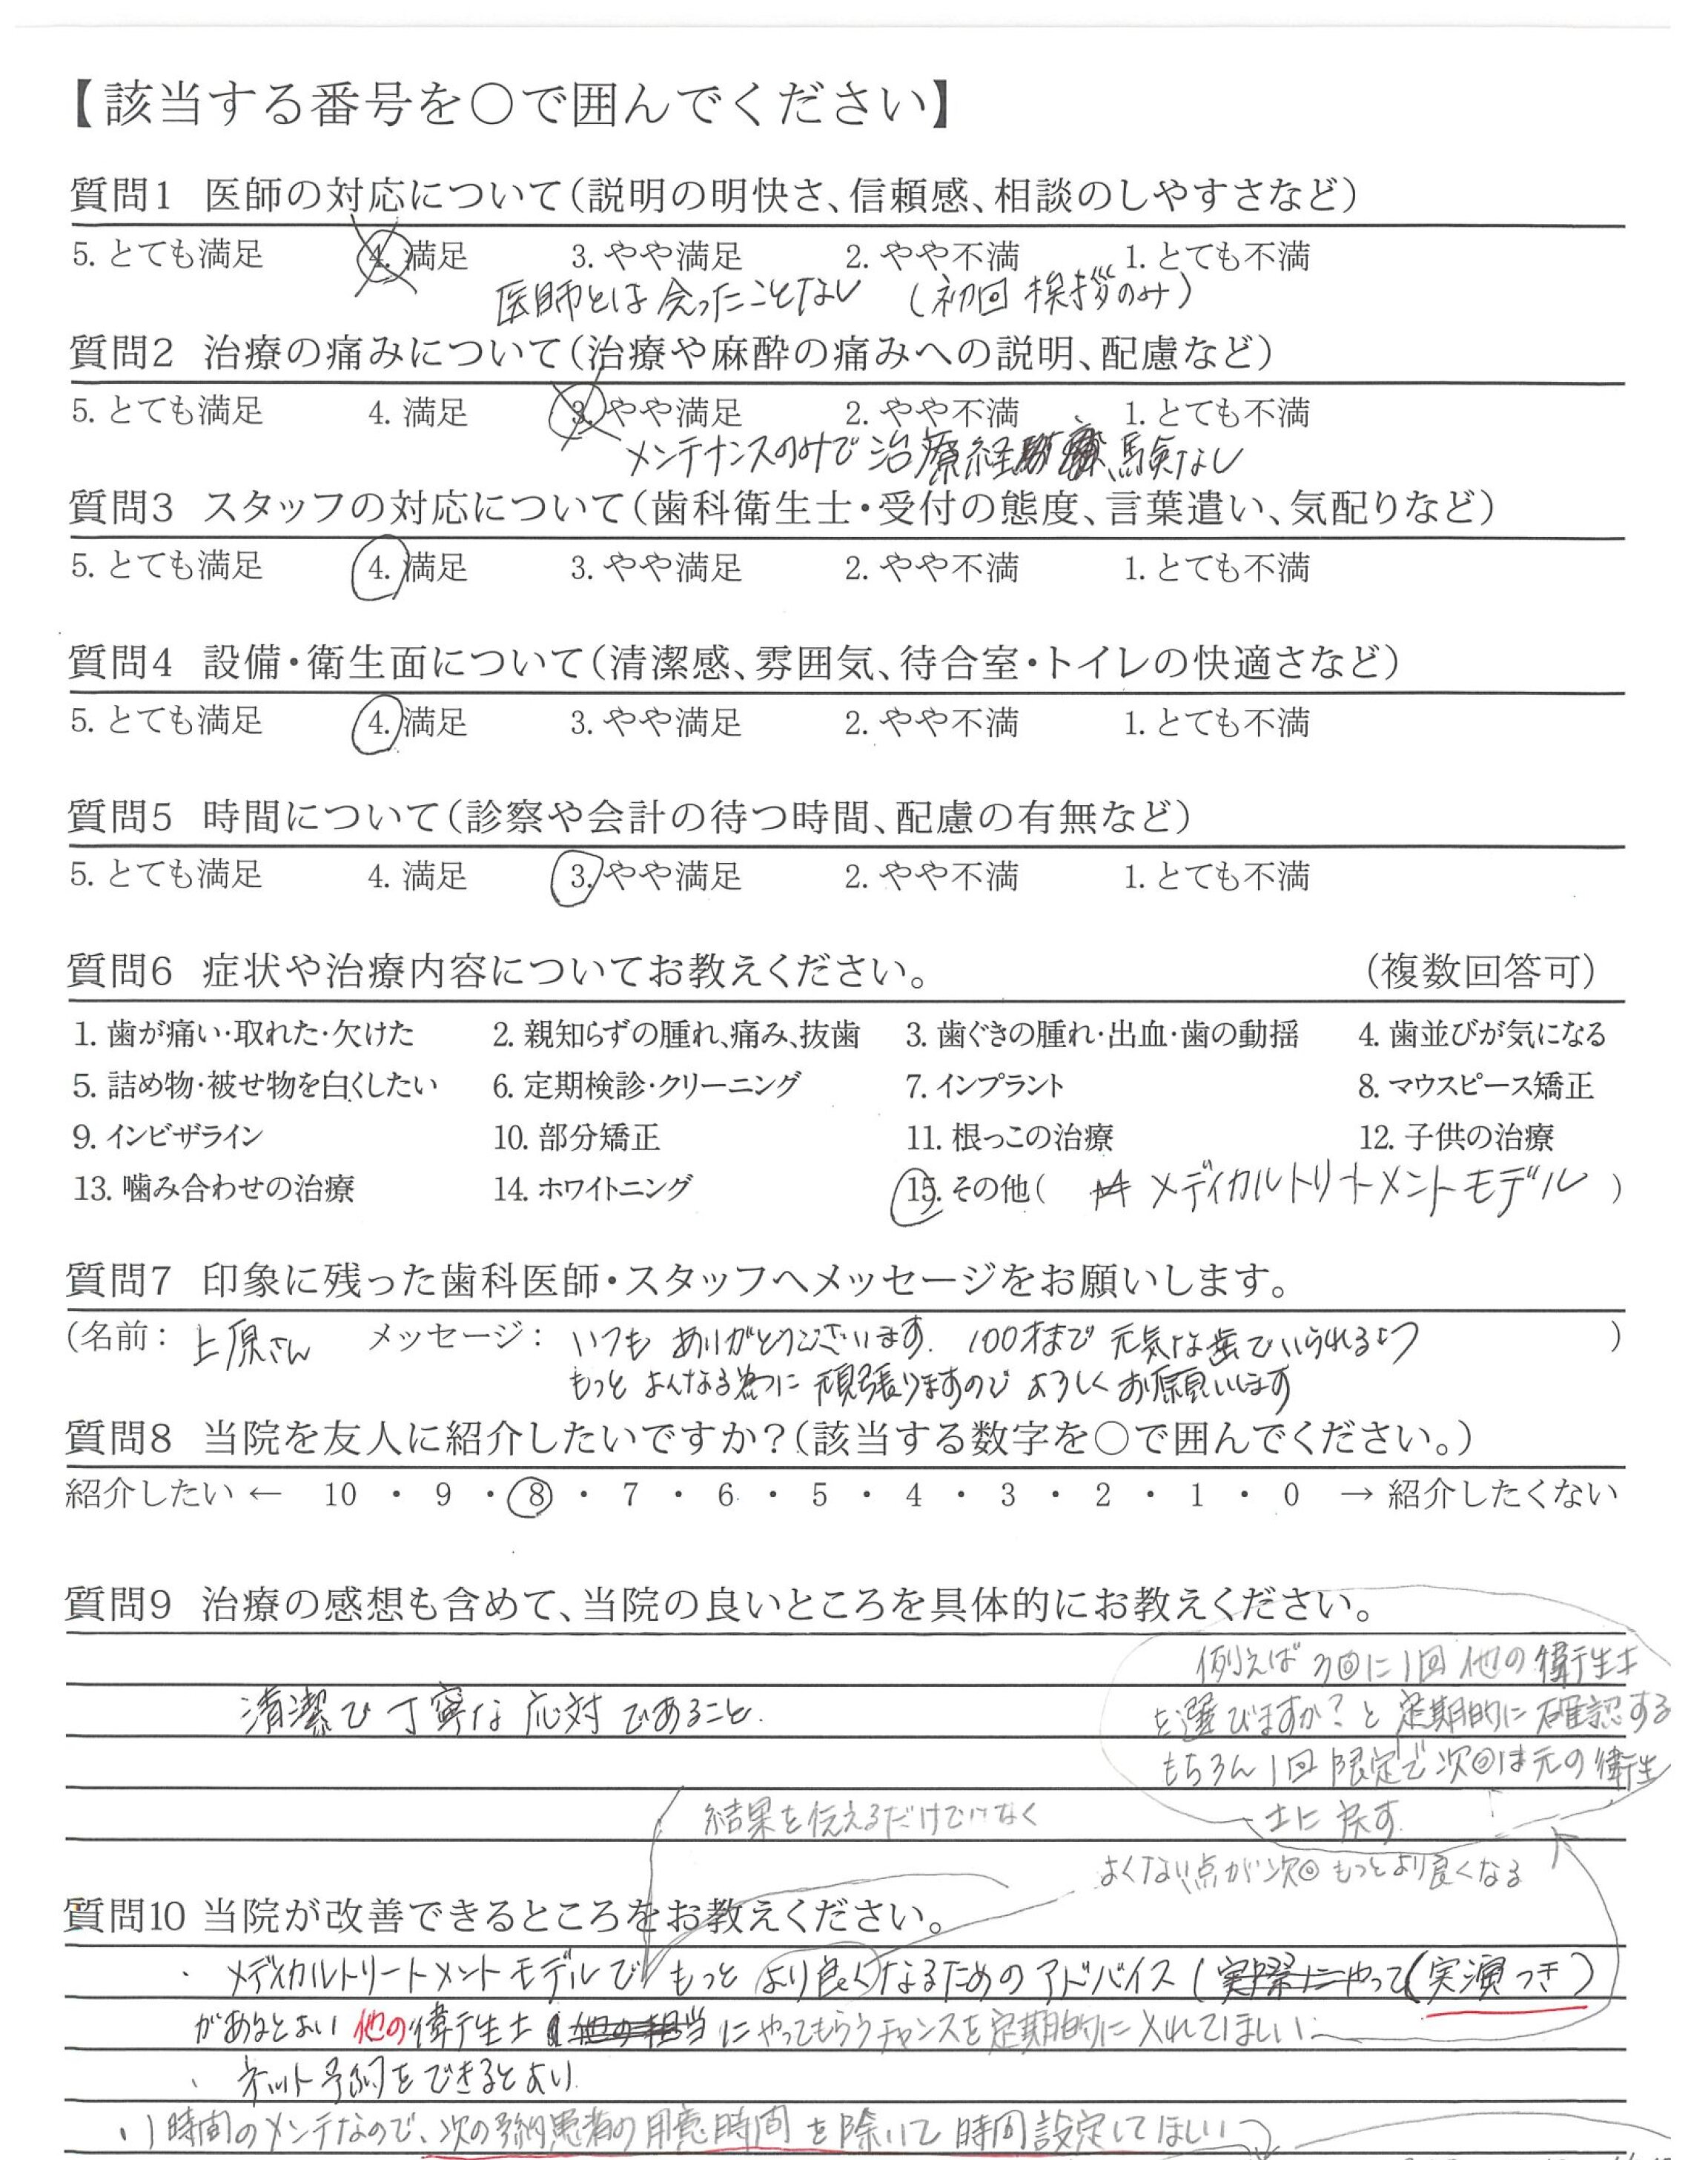 【該当する番号を○で囲んでください】
質問1 医師の対応について(説明の明快さ、信頼感、相談のしやすさなど)
5. とても満足 4. 満足 3. やや満足 2. やや不満 1. とても不満
医師とは会ったことない (初回挨拶のみ)
質問2 治療の痛みについて(治療や麻酔の痛みへの説明、配慮など)
5. とても満足 4. 満足 3. やや満足 2. やや不満 1. とても不満
メンテナンスのみで治療経験なし
質問3 スタッフの対応について(歯科衛生士・受付の態度、言葉遣い、気配りなど)
5. とても満足 4. 満足 3. やや満足 2. やや不満 1. とても不満
質問4 設備・衛生面について(清潔感、雰囲気、待合室・トイレの快適さなど)
5. とても満足 4. 満足 3. やや満足 2. やや不満 1. とても不満
質問5 時間について(診察や会計の待つ時間、配慮の有無など)
5. とても満足 4. 満足 3. やや満足 2. やや不満 1. とても不満
質問6 症状や治療内容についてお教えください。 (複数回答可)
1. 歯が痛い・取れた・欠けた 2. 親知らずの腫れ、痛み、抜歯 3. 歯ぐきの腫れ・出血・歯の動揺 4. 歯並びが気になる
5. 詰め物・被せ物を白くしたい 6. 定期検診・クリーニング 7. インプラント 8. マウスピース矯正
9. インビザライン 10. 部分矯正 11. 根っこの治療 12. 子供の治療
13. 噛み合わせの治療 14. ホワイトニング 15. その他( メディカルトリートメントモデル )
質問7 印象に残った歯科医師・スタッフへメッセージをお願いします。
(名前: 上原さん メッセージ: いつもありがとうございます. 100才まで元気な歯でいられるよう )
もっとよくなる為に頑張りますのでよろしくお願いします
質問8 当院を友人に紹介したいですか?(該当する数字を○で囲んでください。)
紹介したい ← 10 ・ 9 ・ 8 ・ 7 ・ 6 ・ 5 ・ 4 ・ 3 ・ 2 ・ 1 ・ 0 → 紹介したくない
質問9 治療の感想も含めて、当院の良いところを具体的にお教えください。
例えば3回に1回他の衛生士
を選びますか?と定期的に確認する
清潔で丁寧な応対であること.
もちろん1回限定で次回は元の衛生
士に戻す.
結果を伝えるだけでなく
よくない点が次回もっとより良くなる
質問10 当院が改善できるところをお教えください。
・メディカルトリートメントモデルでもっとより良くなるためのアドバイス(実際にやって(実演つき)
があるとよい 他の衛生士 他の担当にやってもらうチャンスを定期的に入れてほしい
・ネット予約をできるとよい.
・1時間のメンテなので、次の予約患者の用意時間を除いて時間設定してほしい